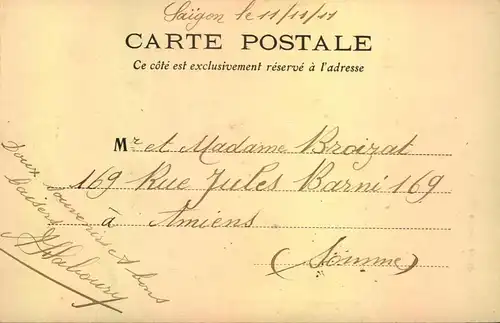 Saïgon le 11/11/11
CARTE POSTALE
Ce côté est exclusivement réservé à l'adresse
Mr et Madame Broizat
169 Rue Jules Barni 169
à Amiens
(Somme)
Doux souvenirs et bons
baisers